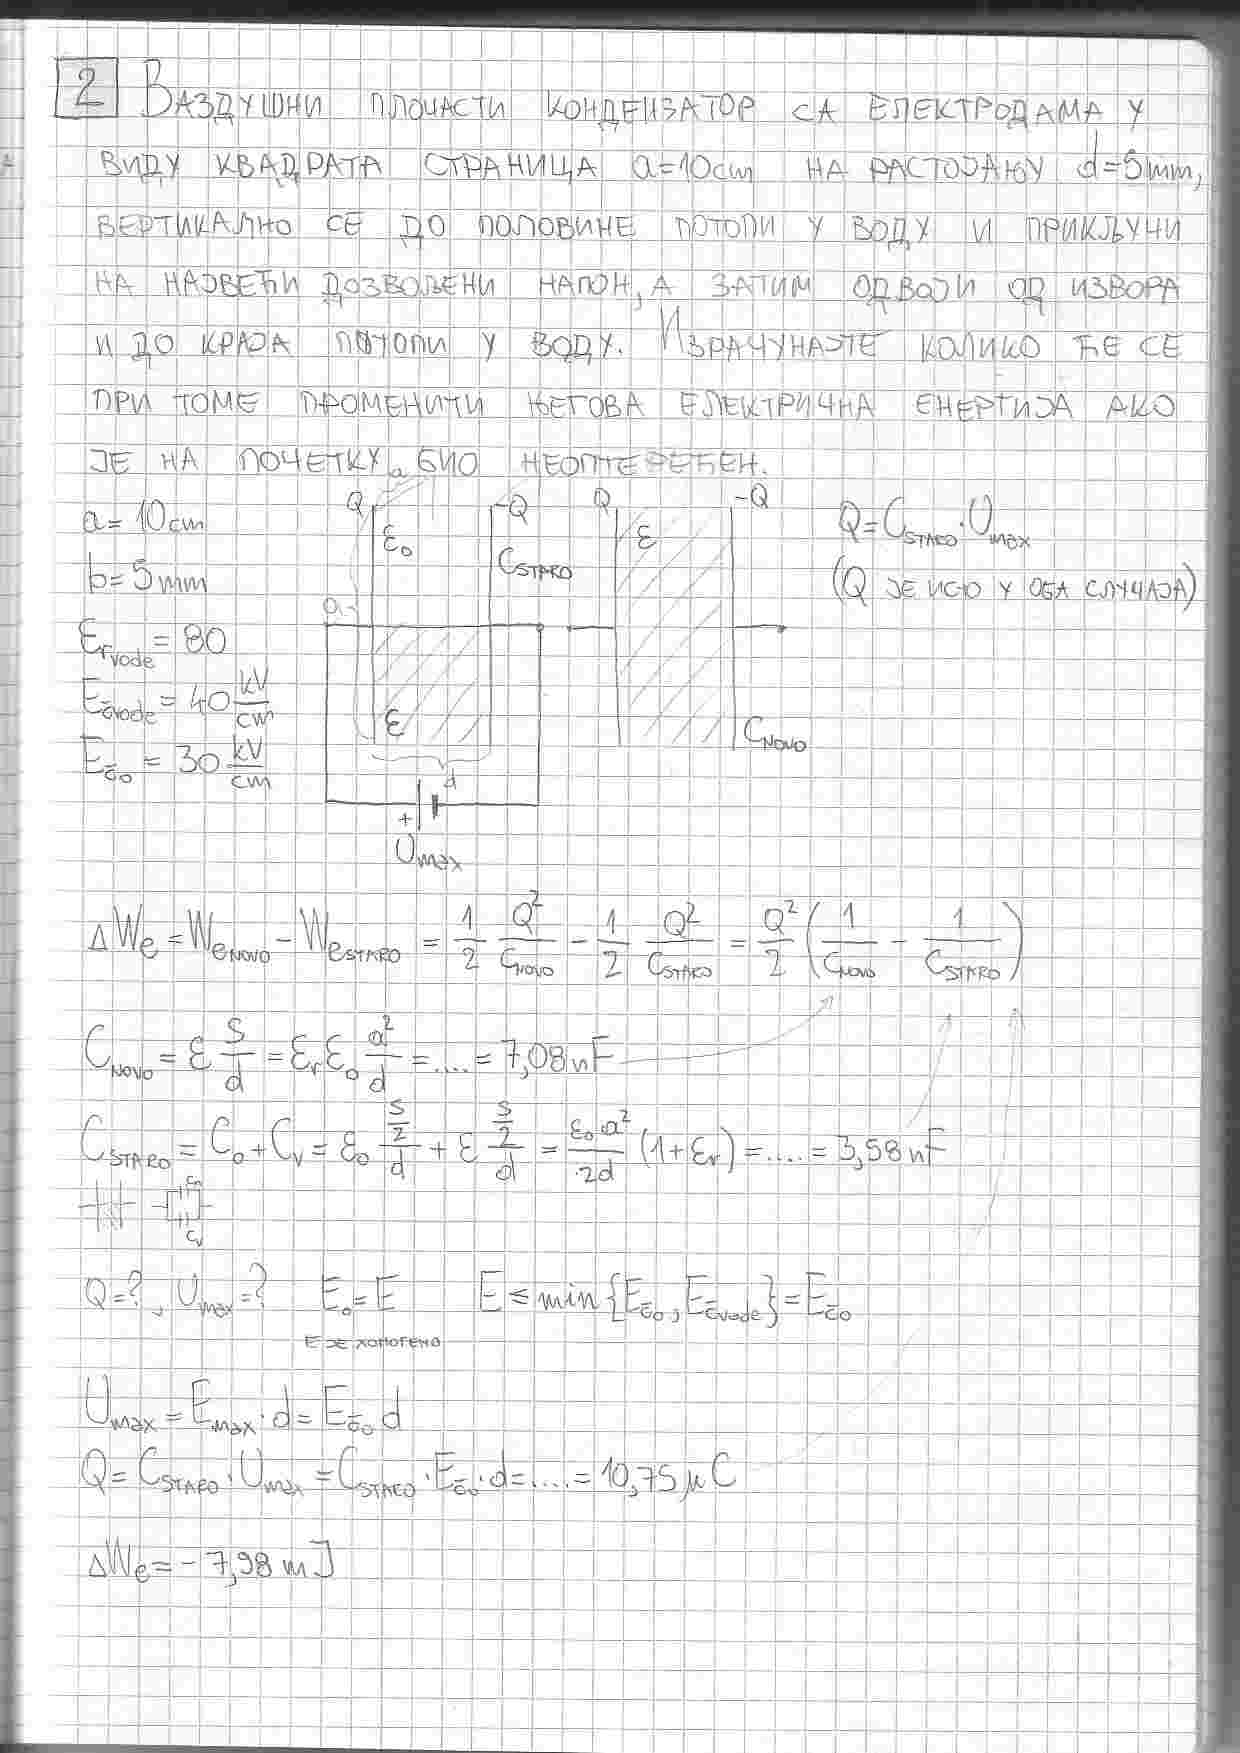 2 Ваздушни плочасти кондензатор са електродама у
виду квадрата страница a=10cm на растојању d=5mm,
вертикално се до половине потопи у воду и прикључи
на највећи дозвољени напон, а затим одвоји од извора
и до краја потопи у воду. Израчунајте колико ће се
при томе променити његова електрична енергија ако
је на почетку био неоптерећен.
a = 10cm
b = 5mm
Ɛrvode = 80
Ečvode = 40 kV/cm
Eč0 = 30 kV/cm
Q -Q Q -Q
Ɛ0 Ɛ
CSTARO
a
Ɛ
d
CNOVO
+
Umax
Q = CSTARO · Umax
(Q је исто у оба случаја)
ΔWe = WeNOVO - WeSTARO = 1/2 Q²/CNOVO - 1/2 Q²/CSTARO = Q²/2 (1/CNOVO - 1/CSTARO)
CNOVO = Ɛ S/d = Ɛr Ɛ0 a²/d = .... = 7,08 nF
CSTARO = C0 + CV = Ɛ0 (S/2)/d + Ɛ (S/2)/d = Ɛ0 a²/2d (1+Ɛr) = .... = 3,58 nF
Cv
Q = ?, Umax = ? E0 = E E ≤ min{Eč0, Ečvode} = Eč0
E је хомогено
Umax = Emax · d = Eč0 d
Q = CSTARO · Umax = CSTARO · Eč0 · d = .... = 10,75 μC
ΔWe = - 7,98 mJ